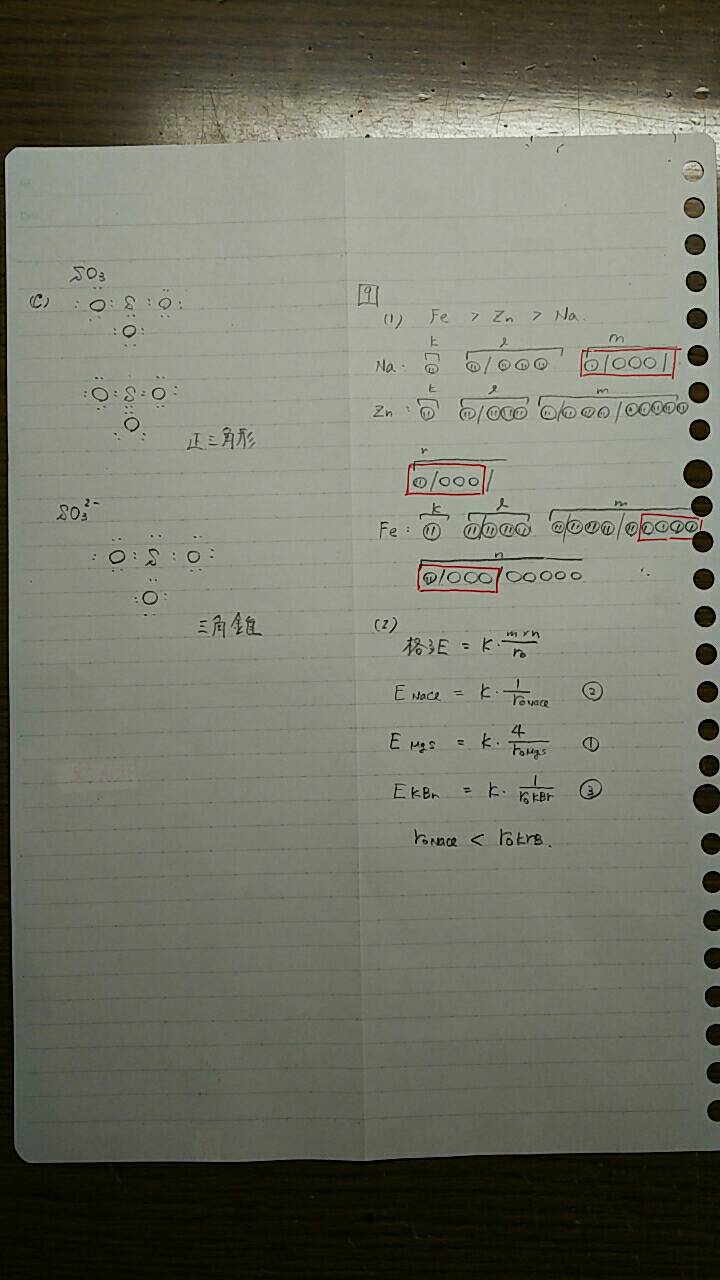 SO₃
(C) :O:S:O:
O
:O:S:O:
:O:
正三角形
SO₃²⁻
:O:S:O:
:O:
三角錐
9
(1) Fe > Zn > Na.
k l m
Na:
k l m
Zn:
n
k l m
Fe:
n
(2)
E = k・m×n/r₀
E NaCl = k・1/r₀NaCl ②
E MgS = k・4/r₀MgS ①
E KBr = k・1/r₀KBr ③
r₀NaCl < r₀KrB.